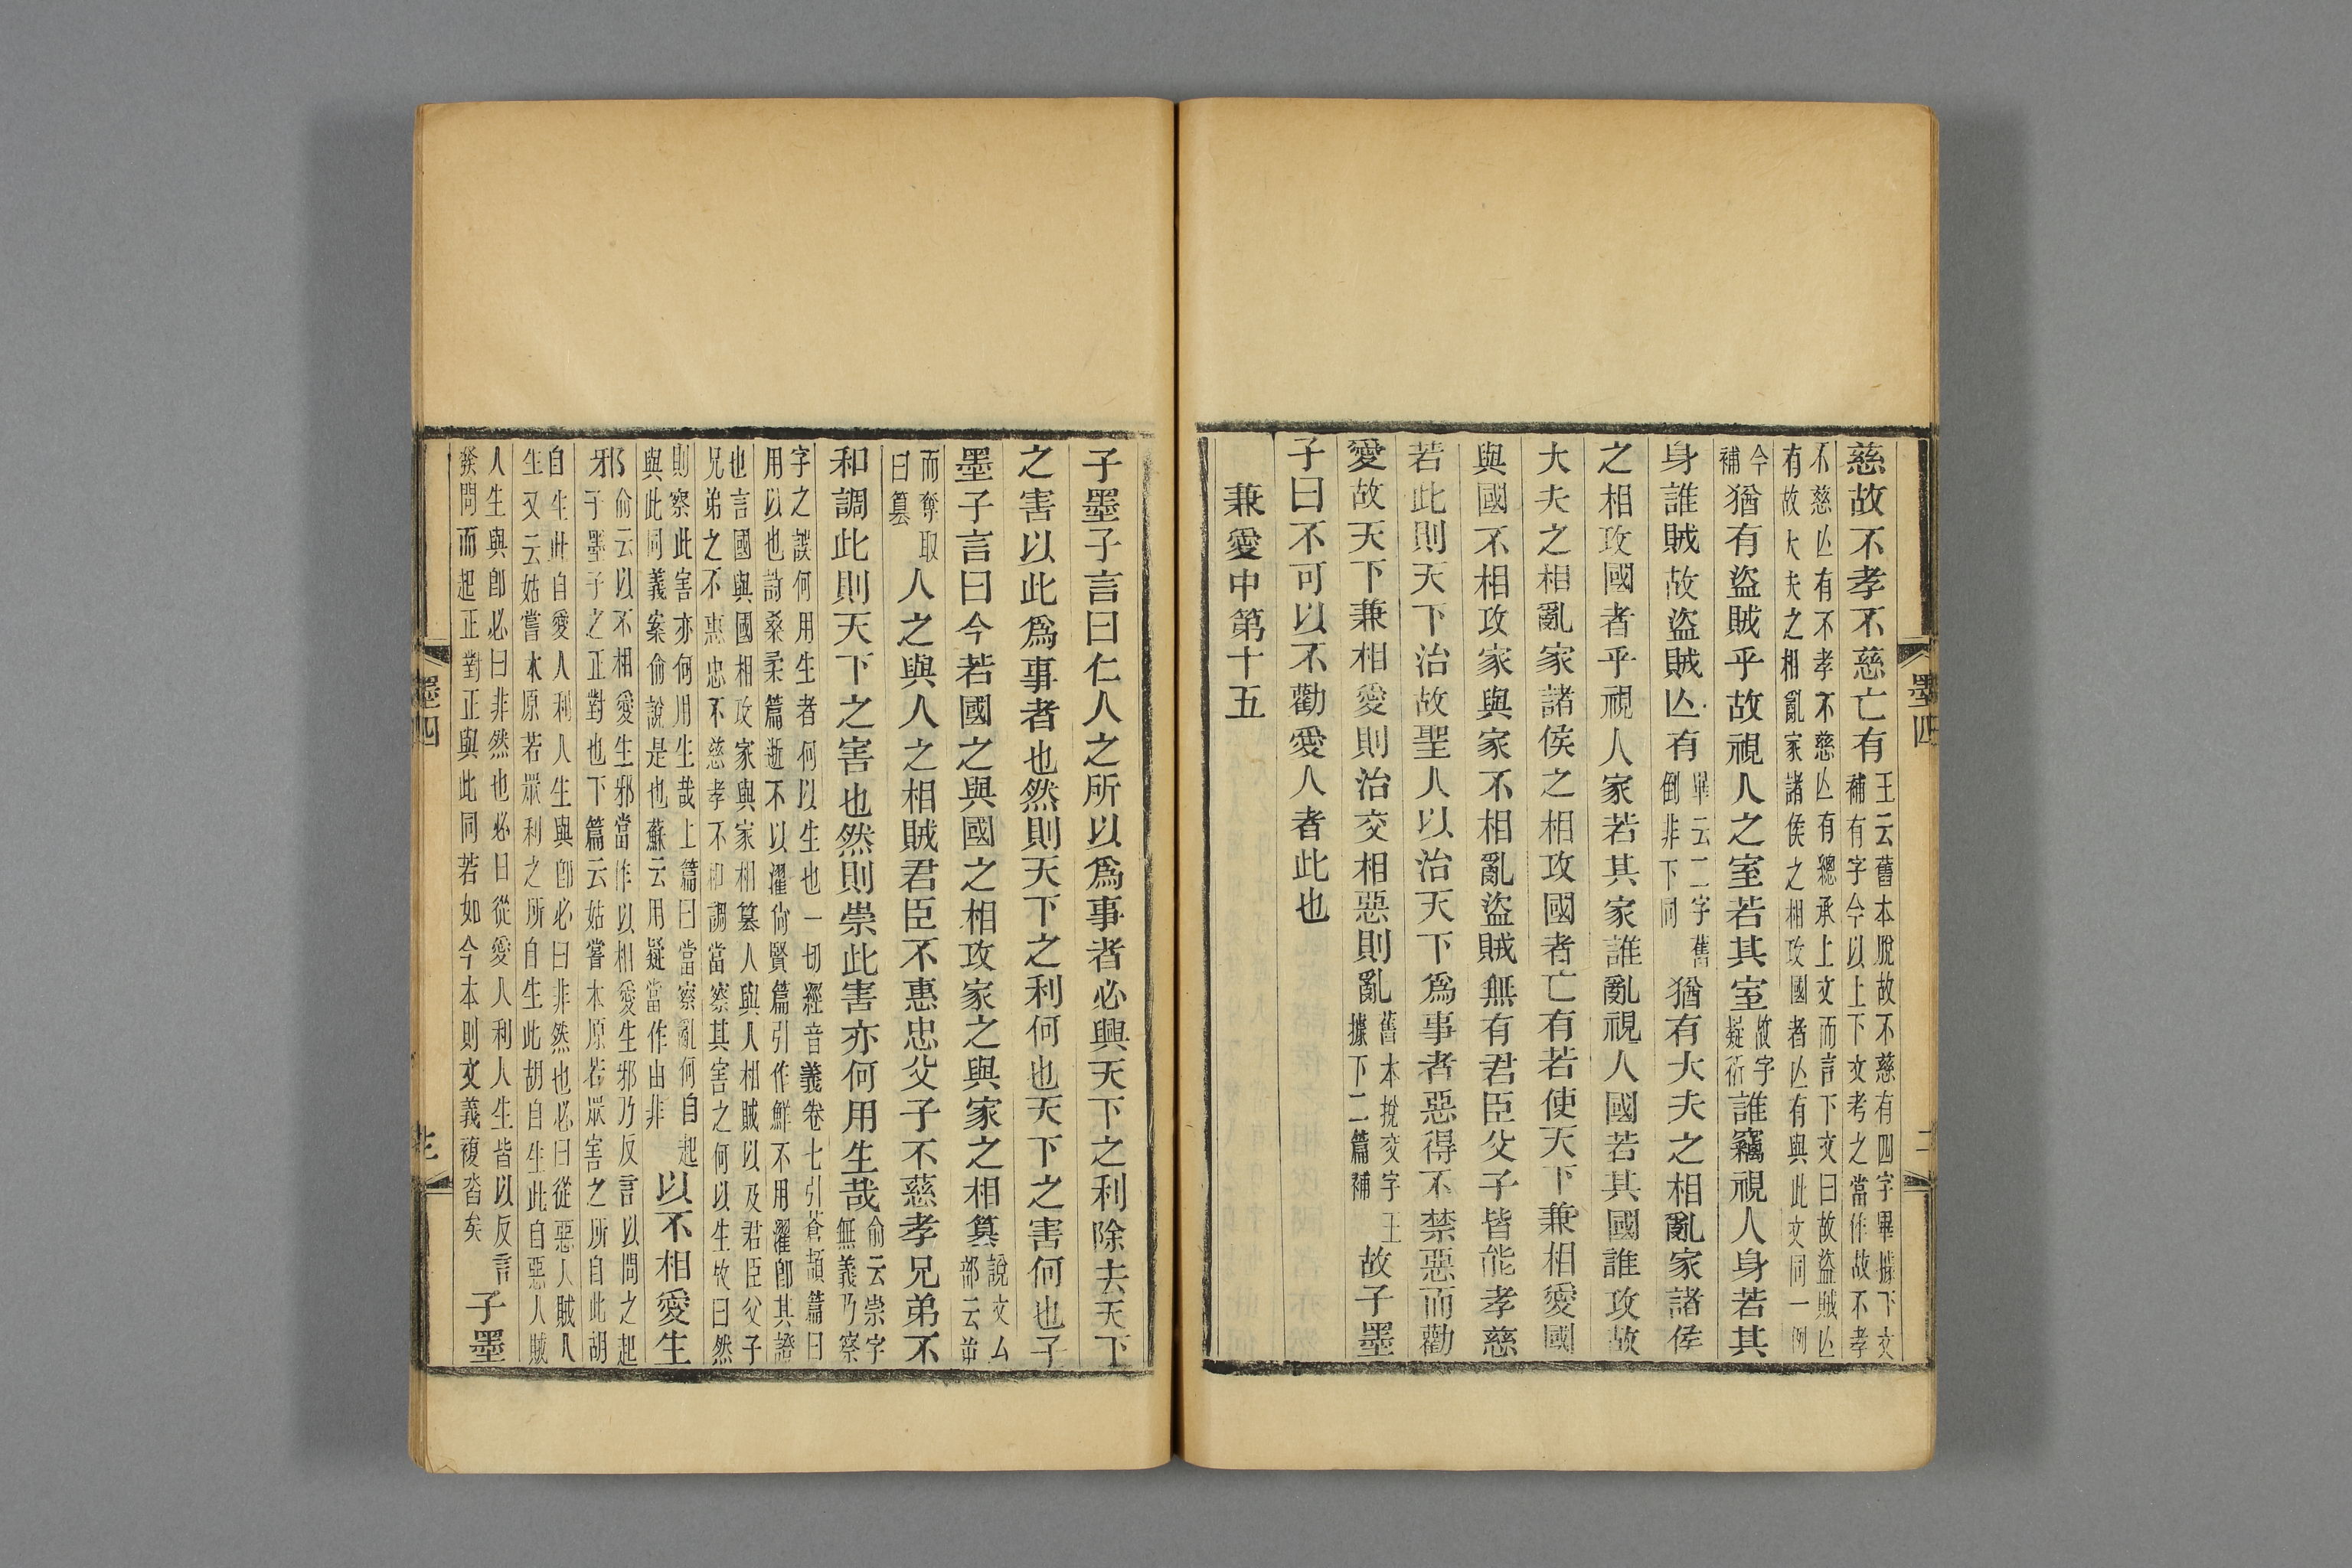 慈故不孝不慈亡有王云舊本脫故不慈有四字畢據下文
補有字今以上下文考之當作故不孝
不慈亾有不孝不慈亾有總承上文而言下文曰故盜賊亾
有故大夫之相亂家諸侯之相攻國者亾有與此文同一例
今補猶有盜賊乎故視人之室若其室故字疑衍誰竊視人身若其
身誰賊故盜賊亾有畢云二字舊倒非下同猶有大夫之相亂家諸侯
之相攻國者乎視人家若其家誰亂視人國若其國誰攻故
大夫之相亂家諸侯之相攻國者亡有若使天下兼相愛國
與國不相攻家與家不相亂盜賊無有君臣父子皆能孝慈
若此則天下治故聖人以治天下爲事者惡得不禁惡而勸
愛故天下兼相愛則治交相惡則亂舊本挩交字王據下二篇補故子墨
子曰不可以不勸愛人者此也
兼愛中第十五
墨四
二
子墨子言曰仁人之所以爲事者必興天下之利除去天下
之害以此爲事者也然則天下之利何也天下之害何也子
墨子言曰今若國之與國之相攻家之與家之相篡說文厶部云屰
而奪取曰篡人之與人之相賊君臣不惠忠父子不慈孝兄弟不
和調此則天下之害也然則崇此害亦何用生哉俞云崇字無義乃察
字之誤何用生者何以生也一切經音義卷七引蒼頡篇曰
用以也詩桑柔篇逝不以濯尙賢篇引作鮮不用濯卽其證
也言國與國相攻家與家相篡人與人相賊以及君臣父子
兄弟之不惠忠不慈孝不和調當察其害之何以生故曰然
則察此害亦何用生哉上篇曰當察亂何自起
與此同義案俞說是也蘇云用疑當作由非以不相愛生
邪俞云以不相愛生邪當作以相愛生邪乃反言以問之起
子墨子之正對也下篇云姑嘗本原若眾害之所自此胡
自生此自愛人利人生與卽必曰非然也必曰從惡人賊人
生又云姑嘗本原若眾利之所自生此胡自生此自惡人賊
人生與卽必曰非然也必曰從愛人利人生皆以反言
發問而起正對正與此同若如今本則文義複沓矣子墨
墨四